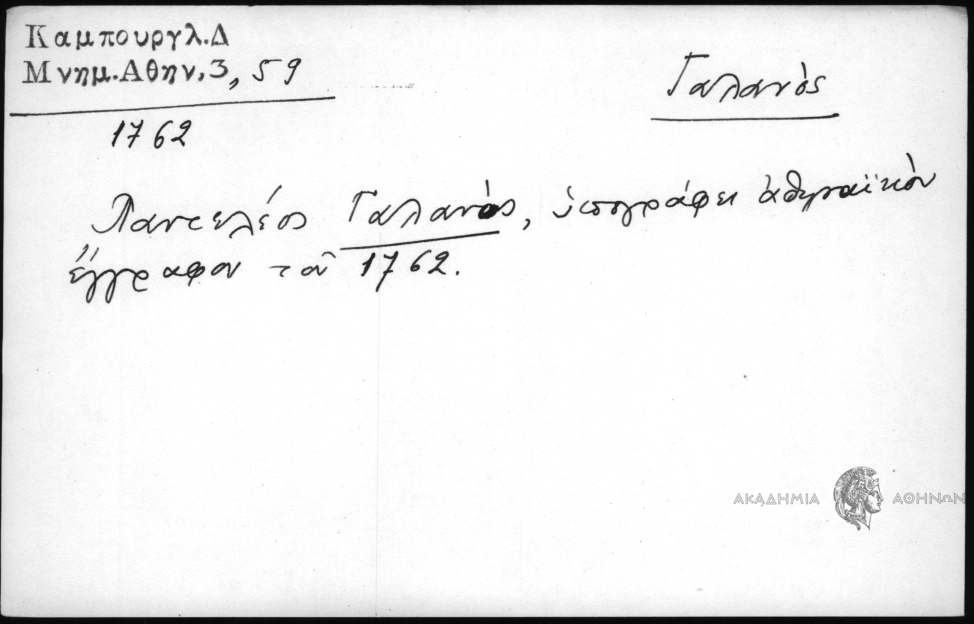 Καμπουργλ.Δ
Μνημ.Αθην.3, 59
Γαλανὸς
1762
Παντελέος Γαλανὸς, ὑπογράφει ἀθηναϊκὸν
ἔγγραφον τοῦ 1762.
ΑΚΑΔΗΜΙΑ ΑΘΗΝΩΝ